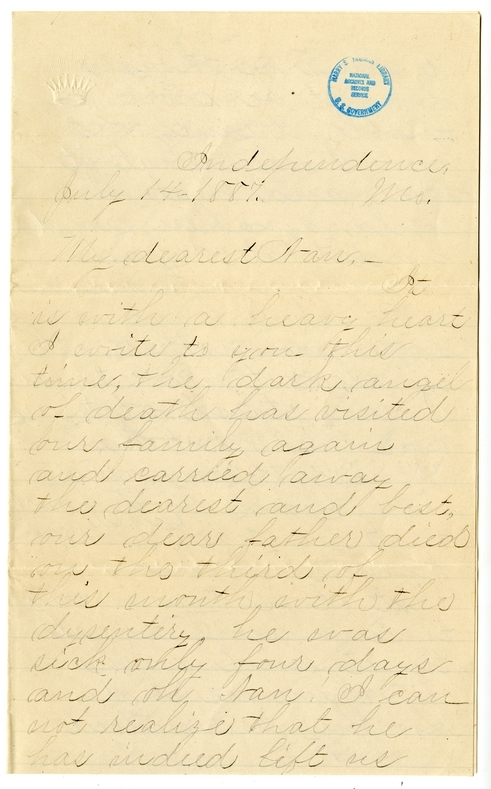 HARRY S. TRUMAN LIBRARY
NATIONAL
ARCHIVES AND
RECORDS
SERVICE
U.S. GOVERNMENT
Independence,
July 14-1887. Mo.
My dearest Nan,—
It
is with a heavy heart
I write to you this
time, the dark angel
of death has visited
our family again
and carried away
the dearest and best,
our dear father died
on the third of
this month with the
dysentiry, he was
sick only four days
and oh Nan. I can
not realize that he
has indeed left us